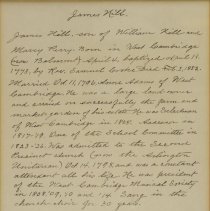 James Hill.
James Hill, son of William Hill and
Mary Perry Born in West Cambridge
(now Belmont) April 4, baptized April 11,
1773, by Rev. Samuel Cooke Died Feb. 2, 1852.
Married Oct 11, 1796, Anne Adams of West
Cambridge. He was a large land owner
and carried on successfully the farm and
market garden of his estate. He was Selectman
of West Cambridge in 1808. Assessor in
1817-19. One of the School Committee in
1823-26. Was admitted to the Second
Precinct church (now the Arlington
Unitarian) Oct 14, 1798 and was a constant
attendant all his life. He was president
of the West Cambridge Musical Society
in 1808, 09, 10 and 14. Sang in the
church choir for 30 years.